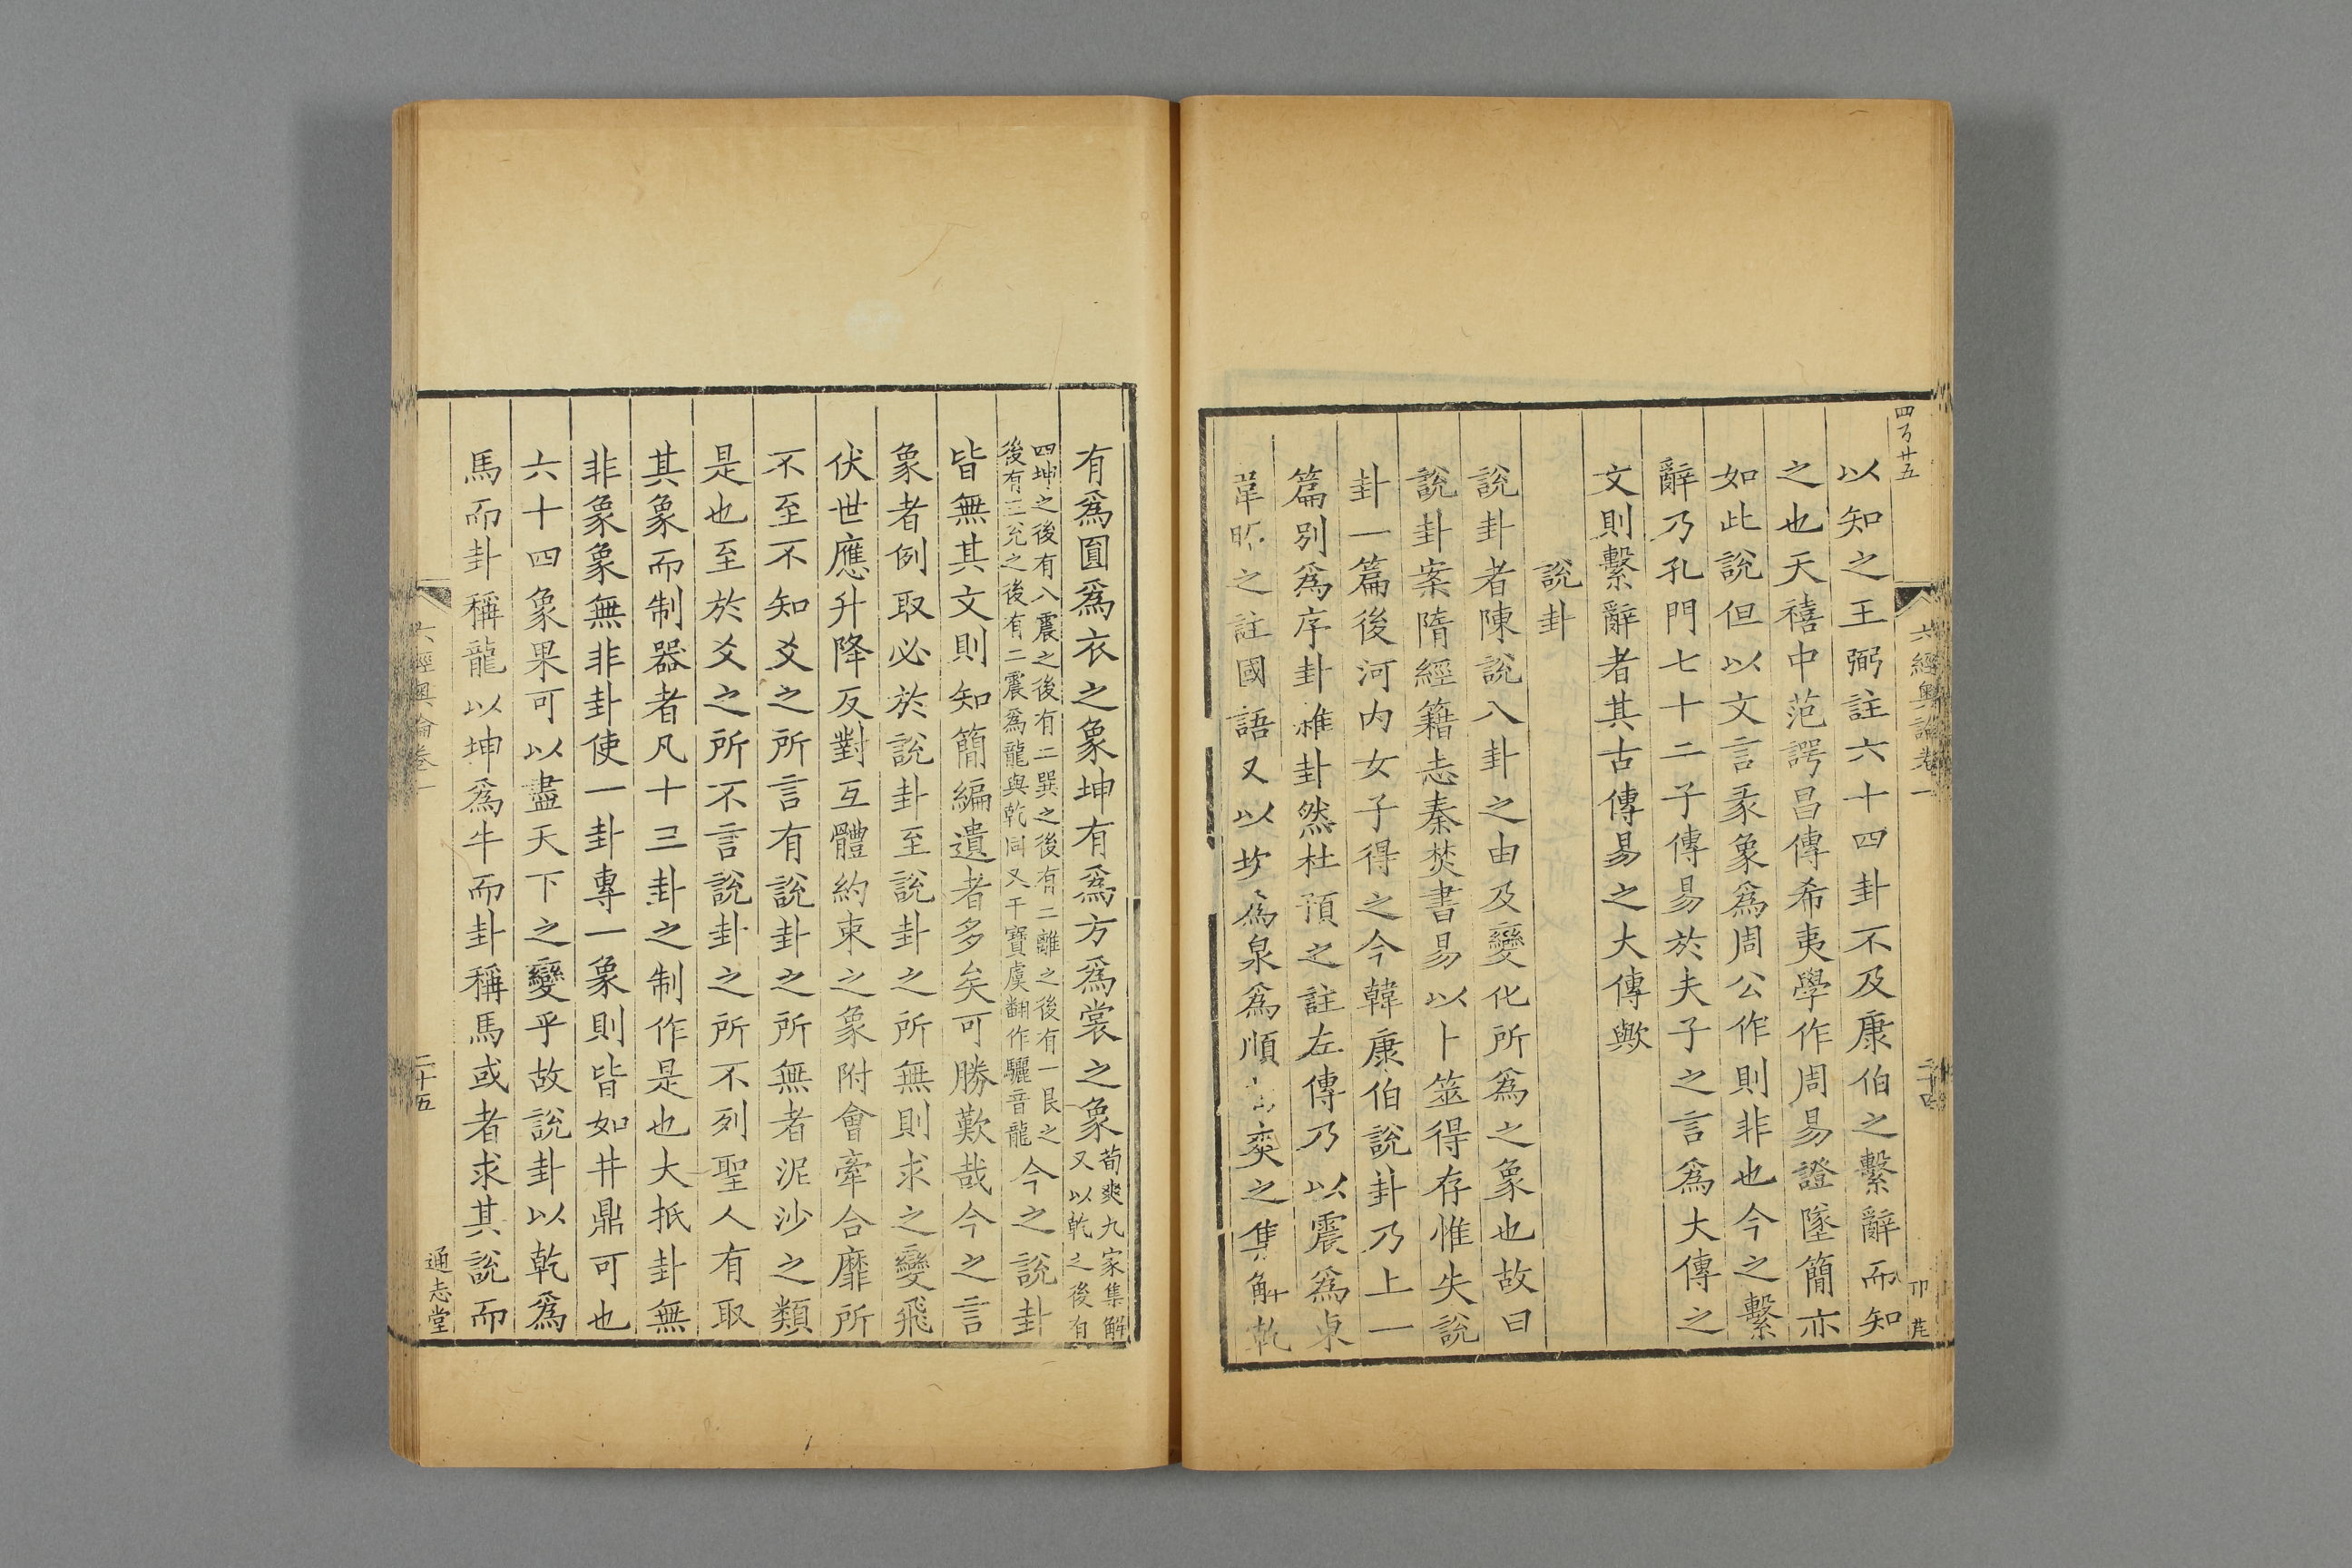 四百廿五
六經奧論卷一
以知之王弼註六十四卦不及康伯之繫辭而知
之也天禧中范諤昌傳希夷學作周易證墜簡亦
如此說但以文言彖象爲周公作則非也今之繫
辭乃孔門七十二子傳易於夫子之言爲大傳之
文則繫辭者其古傳易之大傳歟
說卦
說卦者陳說八卦之由及變化所爲之象也故曰
說卦案隋經籍志秦焚書易以卜筮得存惟失說
卦一篇後河內女子得之今韓康伯說卦乃上一
篇別爲序卦雜卦然杜預之註左傳乃以震爲車
韋昭之註國語又以坎爲泉爲順荀爽之集解乾
有爲圓爲衣之象坤有爲方爲裳之象荀爽九家集解又以乾之後有
四坤之後有八震之後有二巽之後有二離之後有一艮之
後有三兌之後有二震爲龍與乾同又干寶虞翻作驪音龍今之說卦
皆無其文則知簡編遺者多矣可勝歎哉今之言
象者例取必於說卦至說卦之所無則求之變飛
伏世應升降反對互體約束之象附會牽合靡所
不至不知爻之所言有說卦之所無者泥沙之類
是也至於爻之所不言說卦之所不列聖人有取
其象而制器者凡十三卦之制作是也大抵卦無
非象象無非卦使一卦專一象則皆如井鼎可也
六十四象果可以盡天下之變乎故說卦以乾爲
馬而卦稱龍以坤爲牛而卦稱馬或者求其說而
六經奧論卷一
二十五
通志堂